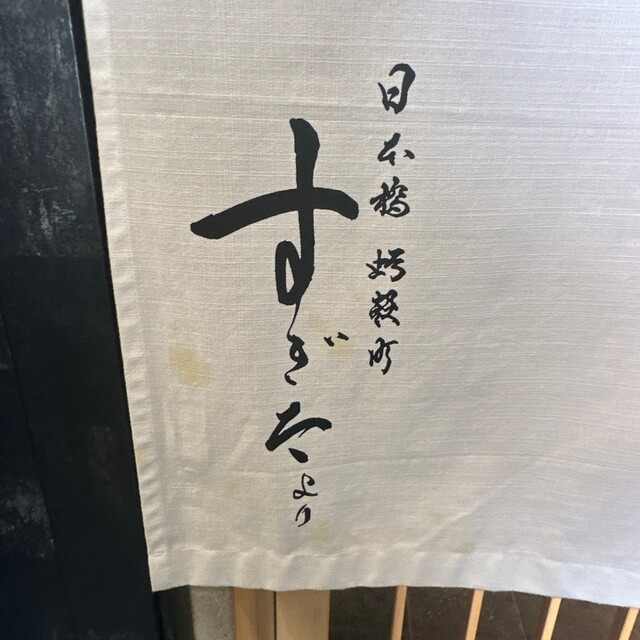 日本橋 蛎殻町
すぎたより